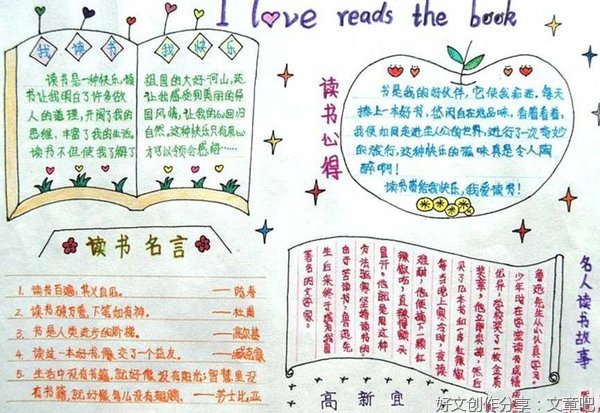 I love reads the book
我读书 我快乐
读书是一种快乐,读
书让我明白了许多做人
的道理,开阔了我的
思维,丰富了我的生活。
读书不但使我了解了
祖国的大好河山,还
让我感受到美丽的异
国风情,让我的心回归
自然,这种快乐只有用心
才可以领会感悟……
读书心得
书是我的好伙伴,它使我着迷。每天
捧上一本好书,悠闲自在地品味,看着看着,
我便如同走进主人公的世界,进行了一次奇妙
的旅行,这种快乐的滋味真是令人陶
醉啊!
读书带给我快乐,我爱读书!
读书名言
1. 读书百遍,其义自见。——陆寿
2. 读书破万卷,下笔如有神。——杜甫
3. 书是人类进步的阶梯。——高尔基
4. 读过一本好书,像交了一个益友。——臧克家
5. 生活中没有书籍,就好像没有阳光;智慧里没
有书籍,就好像鸟儿没有翅膀。——莎士比亚
名人读书故事
鲁迅先生从小认真学习。
少年时在学堂读书成绩
优异,学校奖了一枚金质
奖章,他立即卖掉,然后
买了几本书和一串红辣椒
每当晚上寒冷时,夜读
难耐,他便摘下一颗红
辣椒吃,直辣得额头
冒汗。他就是用这种
方法驱寒坚持读书的
由于苦读书,鲁迅先
生后来终于成为我国
著名的文学家。
高新宜
好文创作分享·文章吧